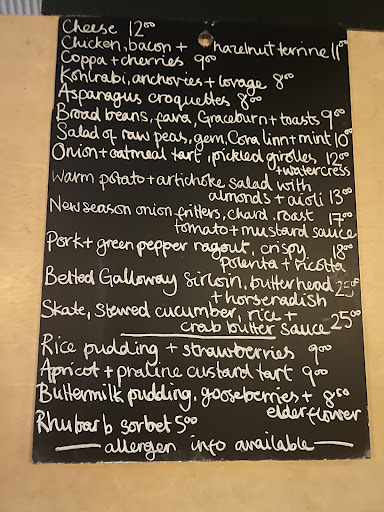 Cheese 12°°
Chicken, bacon + hazelnut terrine 11°°
Coppa + cherries 9°°
Kohlrabi, anchovies + lovage 8°°
Asparagus croquettes 8°°
Broad beans, fava, Graceburn + toasts 9°°
Salad of raw peas, gem, Cora linn + mint 10°°
Onion + oatmeal tart, pickled girolles 12°°
+ watercress
Warm potato + artichoke salad with
almonds + aioli 13°°
New season onion fritters, chard, roast 17°°
tomato + mustard sauce
Pork + green pepper ragout, crispy 18°°
polenta + ricotta
Belted Galloway sirloin, butterhead 25°°
+ horseradish
Skate, stewed cucumber, rice +
crab butter sauce 25°°
Rice pudding + strawberries 9°°
Apricot + praline custard tart 9°°
Buttermilk pudding, gooseberries + 8°°
elderflower
Rhubarb sorbet 5°°
— allergen info available —